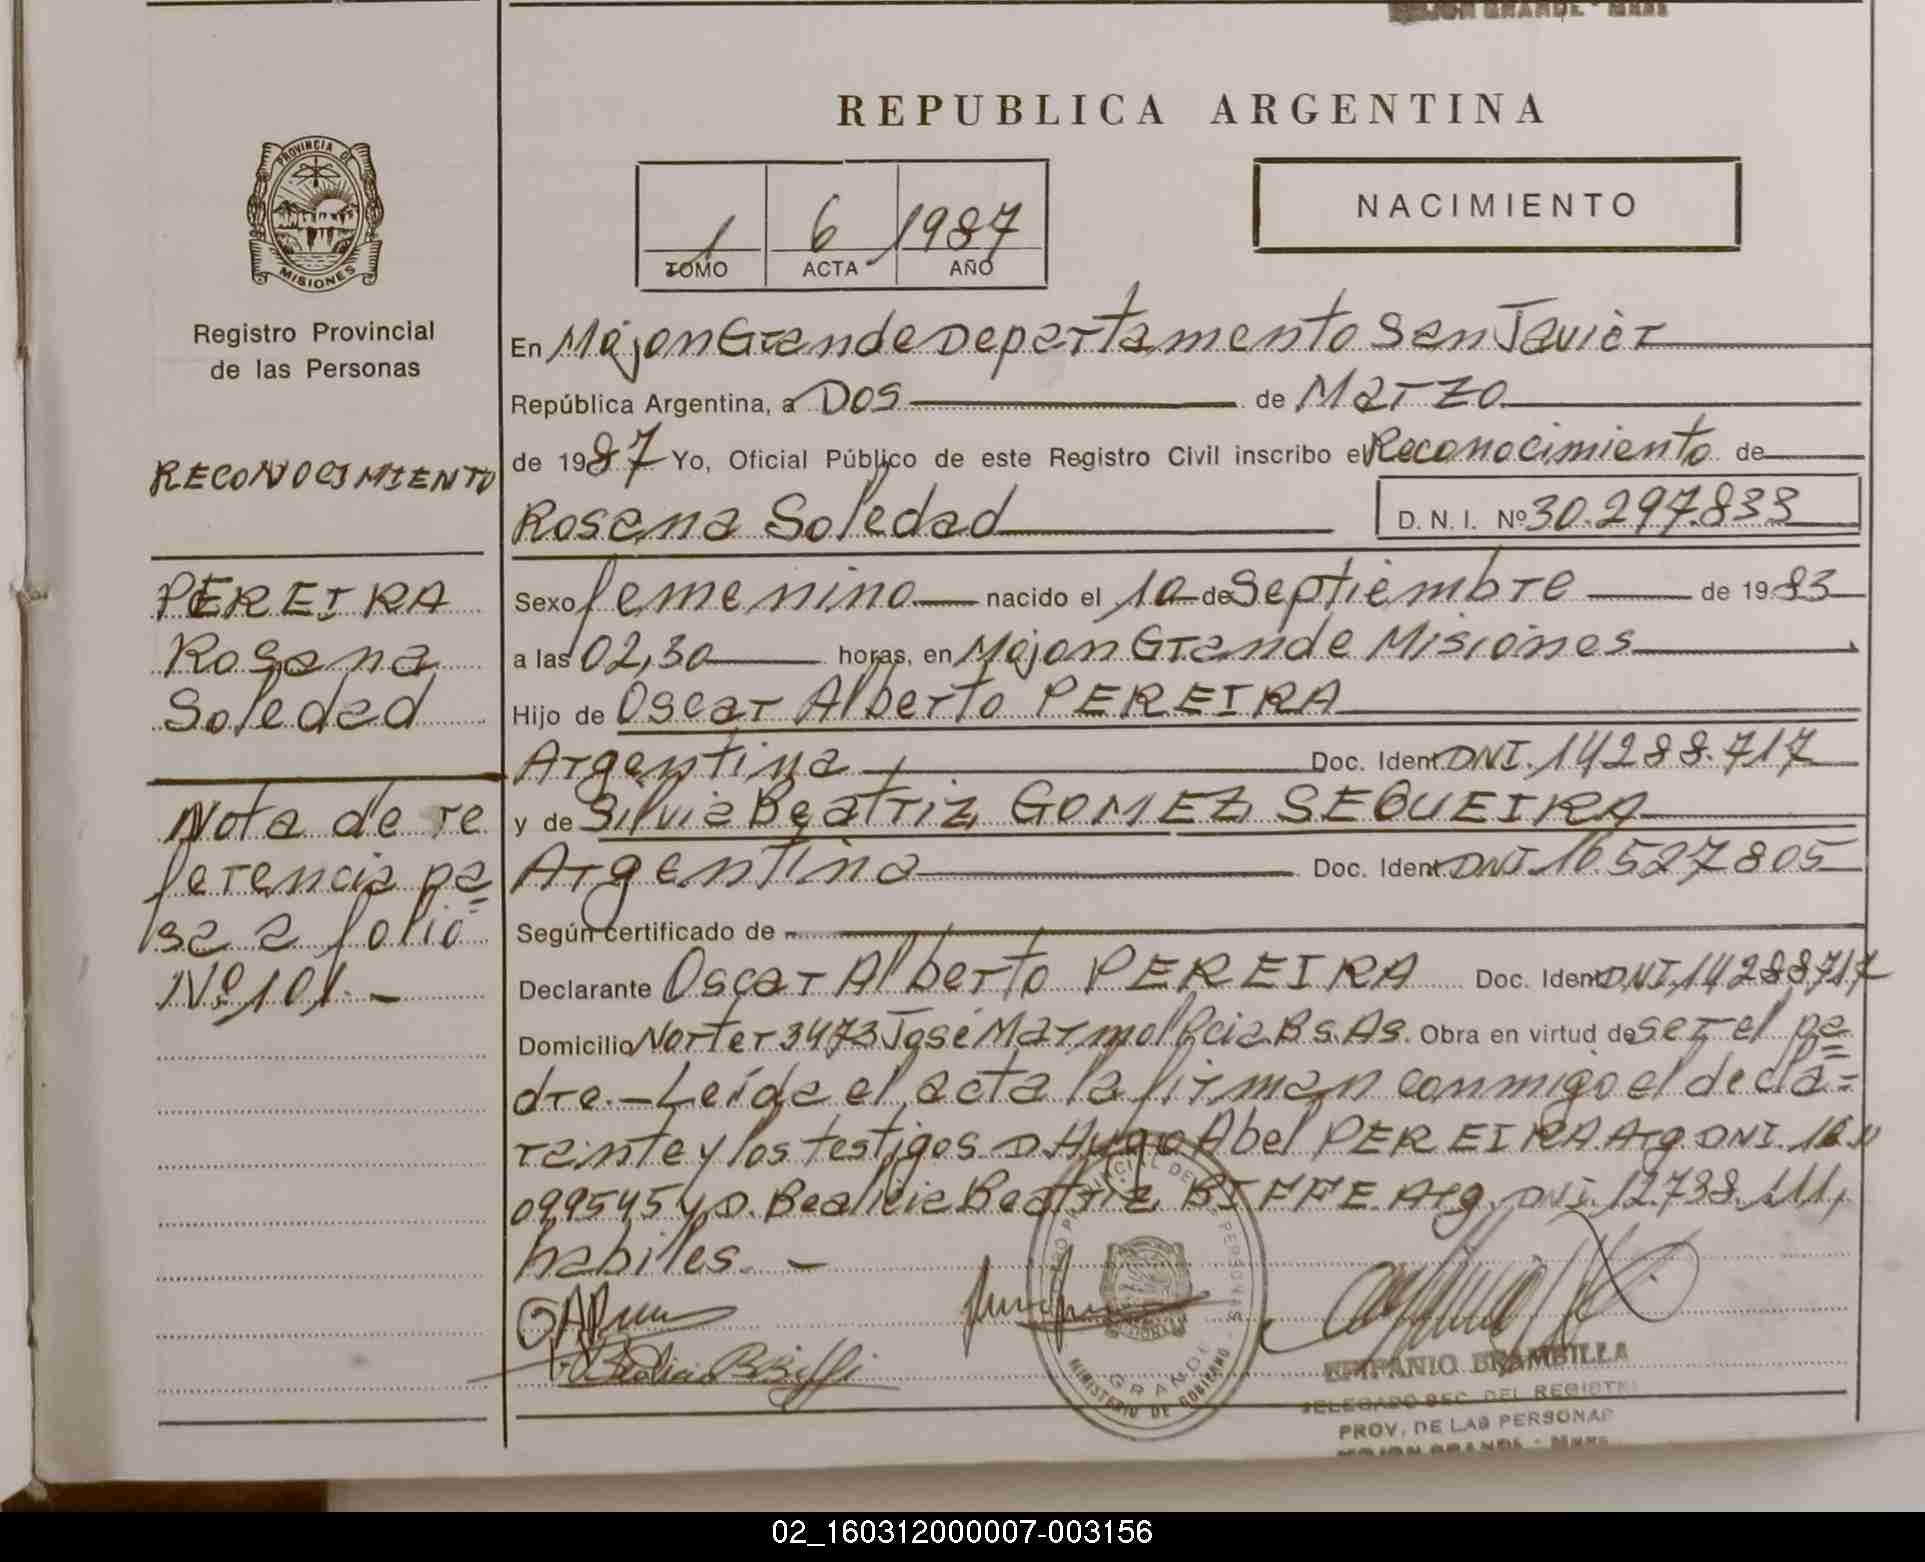 MOJON GRANDE - Mnes
REPUBLICA ARGENTINA
PROVINCIA DE
MISIONES
1 6 1987
TOMO ACTA AÑO
NACIMIENTO
Registro Provincial
de las Personas
RECONOCIMIENTO
PEREIRA
Rosana
Soledad
Nota de re
ferencia pa=
sa a folio
Nº 101.-
En Mojon Grande Departamento San Javier
República Argentina, a Dos de Marzo
de 1987 Yo, Oficial Público de este Registro Civil inscribo el Reconocimiento de
Rosana Soledad D.N.I. Nº 30.297.833
Sexo femenino nacido el 10 de Septiembre de 1983
a las 02,30 horas, en Mojon Grande Misiones
Hijo de Oscar Alberto PEREIRA
Argentina Doc. Ident. DNI. 14288.717
y de Silvia Beatriz GOMEZ SEQUEIRA
Argentina Doc. Ident. DNI 16.527805
Según certificado de
Declarante Oscar Alberto PEREIRA Doc. Ident. DNI. 14288717
Domicilio Norter 3473 José Marmol Pcia. Bs. As. Obra en virtud de ser el pa=
dre.- Leída el acta la firman conmigo el decla=
rante y los testigos D. Hugo Abel PEREIRA Arg. DNI. 16.
099545 y D. Bealicia Beatriz BIFFE Arg. DNI. 12.738.111,
habiles. -
REGISTRO PROVINCIAL DE LAS PERSONAS
GRANDE
MINISTERIO DE GOBIERNO
EPIFANIO BRAMBILLA
DELEGADO SEC. DEL REGISTRO
PROV. DE LAS PERSONAS
MOJON GRANDE - Mnes
02_160312000007-003156